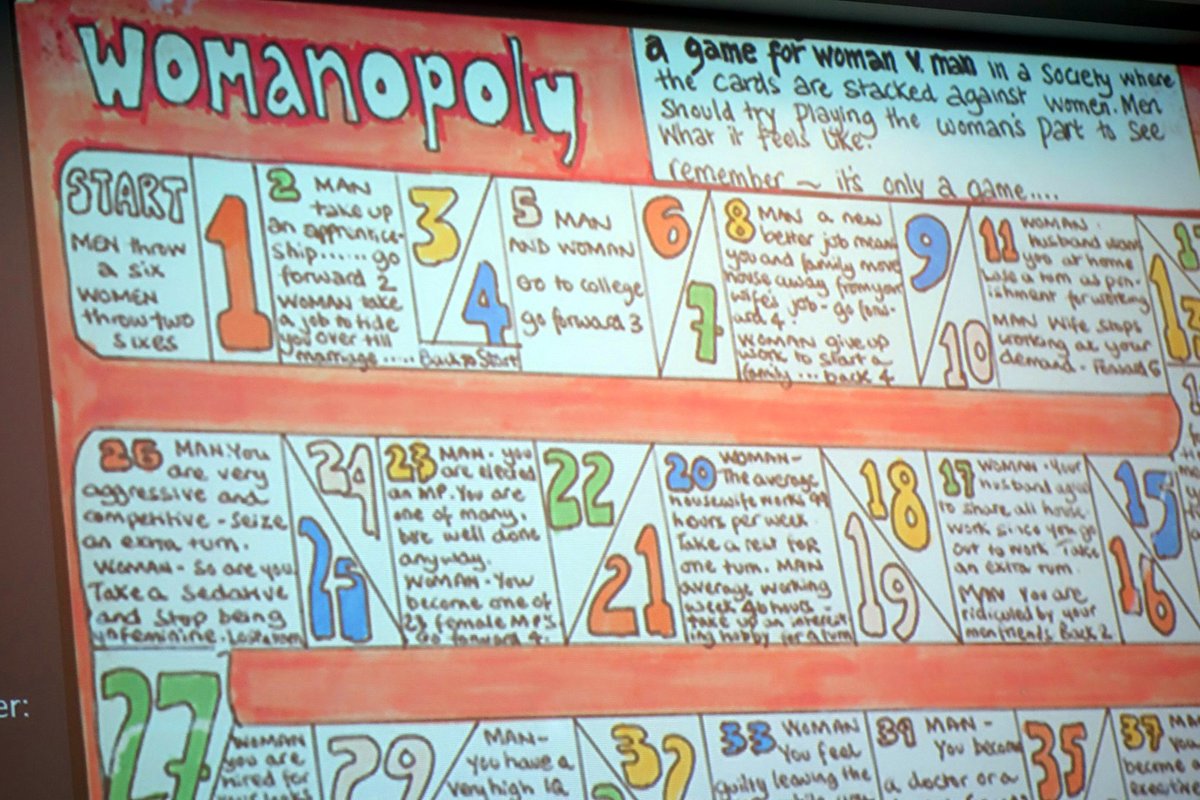 womanopoly
a game for woman v. man in a society where
the cards are stacked against women. Men
should try playing the woman's part to see
what it feels like.
remember ~ it's only a game....
START
MEN throw
a six
WOMEN
throw two
sixes
1
2 MAN
take up
an apprentice-
ship....... go
forward 2
WOMAN take
a job to tide
you over till
marriage ..... Back to Start
3
4
5 MAN
AND WOMAN
Go to college
go forward 3
6
7
8 MAN a new
better job means
you and family move
house away from your
wife's job - go forw-
ard 4.
WOMAN give up
work to start a
family ... back 4
9
10
11 WOMAN
husband want
you at home
lose a turn as pun-
ishment for working
MAN Wife stops
working at your
demand - Forward 6
26 MAN. You
are very
aggressive and
competitive - seize
an extra turn.
WOMAN - So are you
Take a sedative
and stop being
unfeminine.
24
25
23 MAN - you
are elected
an MP. You are
one of many,
but well done
anyway.
WOMAN - You
become one of
female MP's
Go forward 4.
22
21
20 WOMAN -
The average
housewife works 99
hours per week
Take a rest for
one turn. MAN
average working
week 40 hours -
take up an interest
ing hobby for a turn
18
19
17 WOMAN - Your
husband agree
to share all house
work since you go
out to work Take
an extra turn
MAN You are
ridiculed by your
men friends Back 2
15
16
27
WOMAN
you are
hired for
your looks
29
MAN -
you have a
very high IQ
32
33 WOMAN
You feel
guilty leaving the
34 MAN -
You become
a doctor or a
35
37
become a
er: